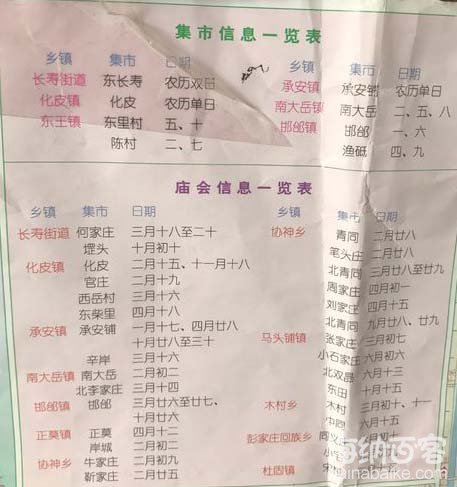 集市信息一览表
乡镇 集市 日期
长寿街道 东长寿 农历双日
化皮镇 化皮 农历单日
东王镇 东里村 五、十
陈村 二、七
乡镇 集市 日期
承安镇 承安铺 农历单日
南大岳镇 南大岳 二、五、八
邯邰镇 邯邰 一、六
渔砥 四、九
庙会信息一览表
乡镇 集市 日期
长寿街道 何家庄 三月十八至二十
堽头 十月初十
化皮镇 化皮 二月十五、十一月十八
官庄 二月十九
西岳村 三月十六
东柴里 四月十八
承安镇 承安铺 一月十七、四月廿八
十月廿八至三十
辛岸 三月十六
南大岳镇 南大岳 二月初二
北李家庄 三月十四
邯邰镇 邯邰 三月廿六至廿七、
十月廿六
正莫镇 正莫 四月十二
岸城 二月初二
协神乡 牛家庄 二月初九
靳家庄 二月廿五
乡镇 集市 日期
协神乡 青同 二月廿八
笔头庄 二月廿八
北青同 三月廿八至廿九
周家庄 四月初一
刘家庄 四月十五
北青同 九月廿八、廿九
马头铺镇 张家庄 三月初三
小石家庄 六月初六
北双晶 六月十三
东田 十月十五
木村乡 木村 三月初十、十一
中同 六月十五
彭家庄回族乡 同义 月初二
杜固镇
百纳百客
bainabaike.com